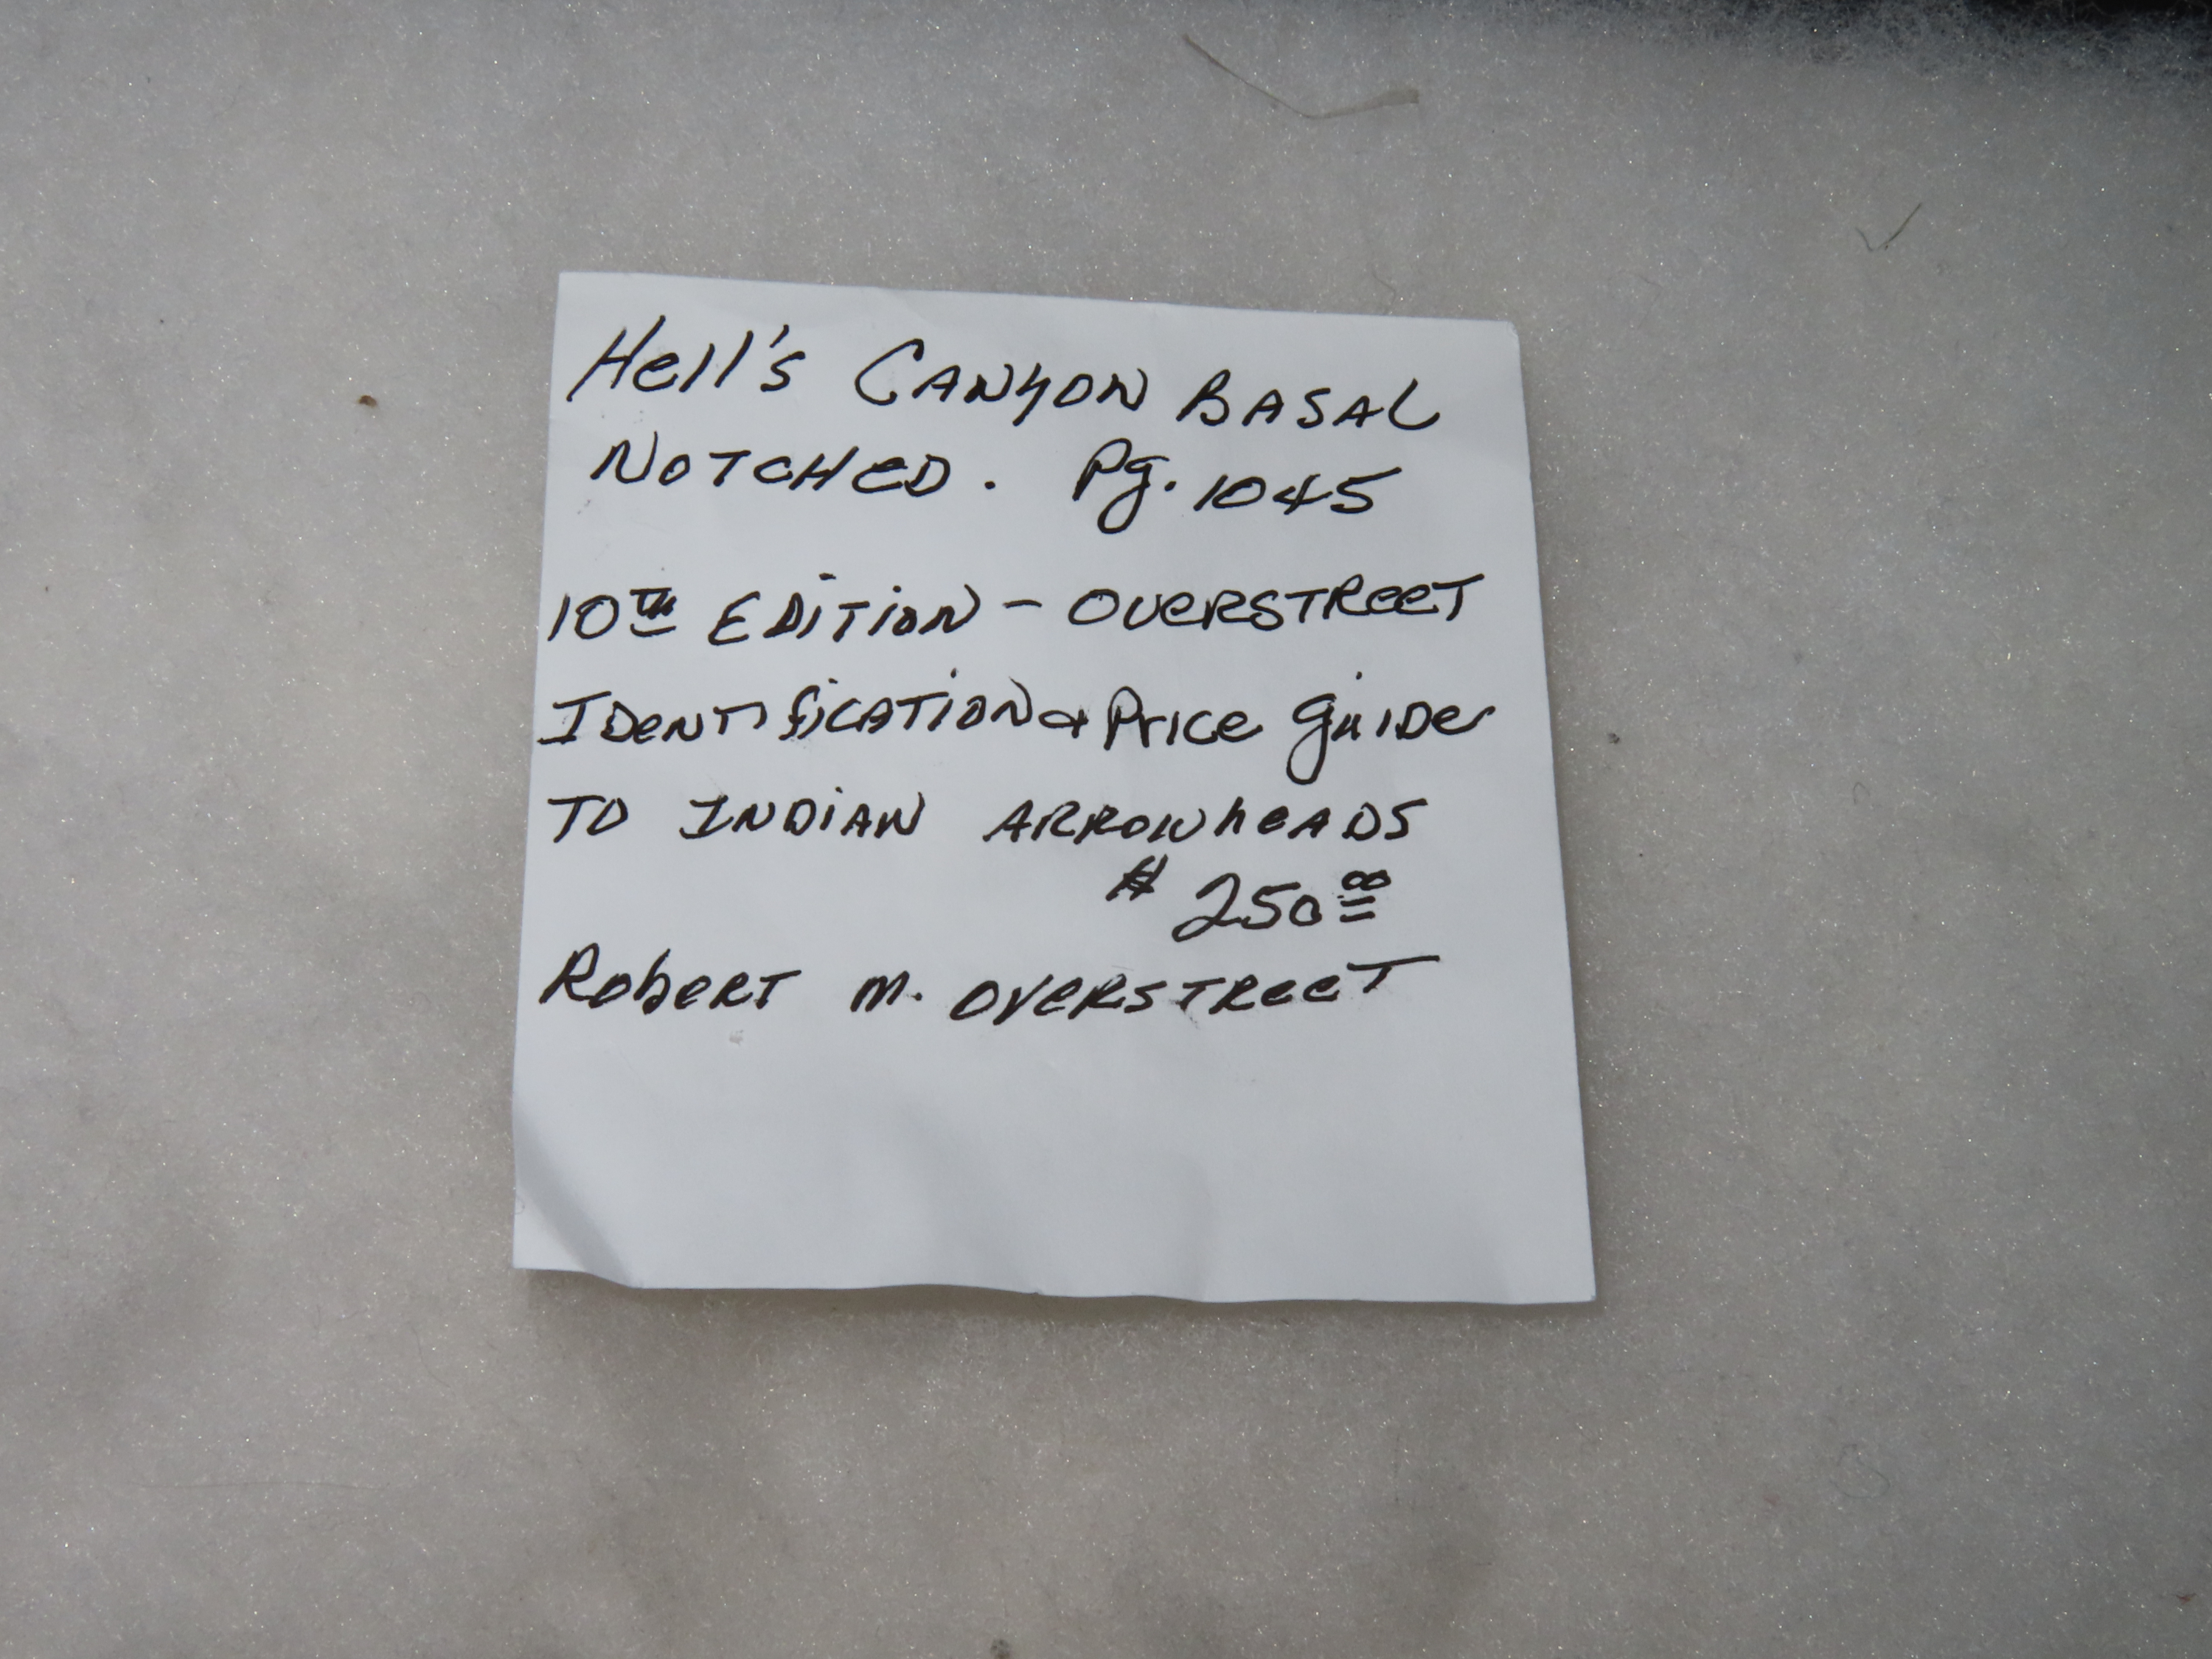 Hell's CANYON BASAL
NOTCHED. Pg. 1045
10TH EDITION - OVERSTREET
IDENTIFICATION & PRICE GUIDE
TO INDIAN ARROWHEADS
$ 250 00
ROBERT M. OVERSTREET